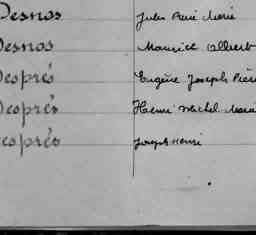 Desnos Jules René Marie
Desnos Maurice Albert
Després Eugène Joseph Pierre
Després Henri Michel Marie
Després Joseph Henri